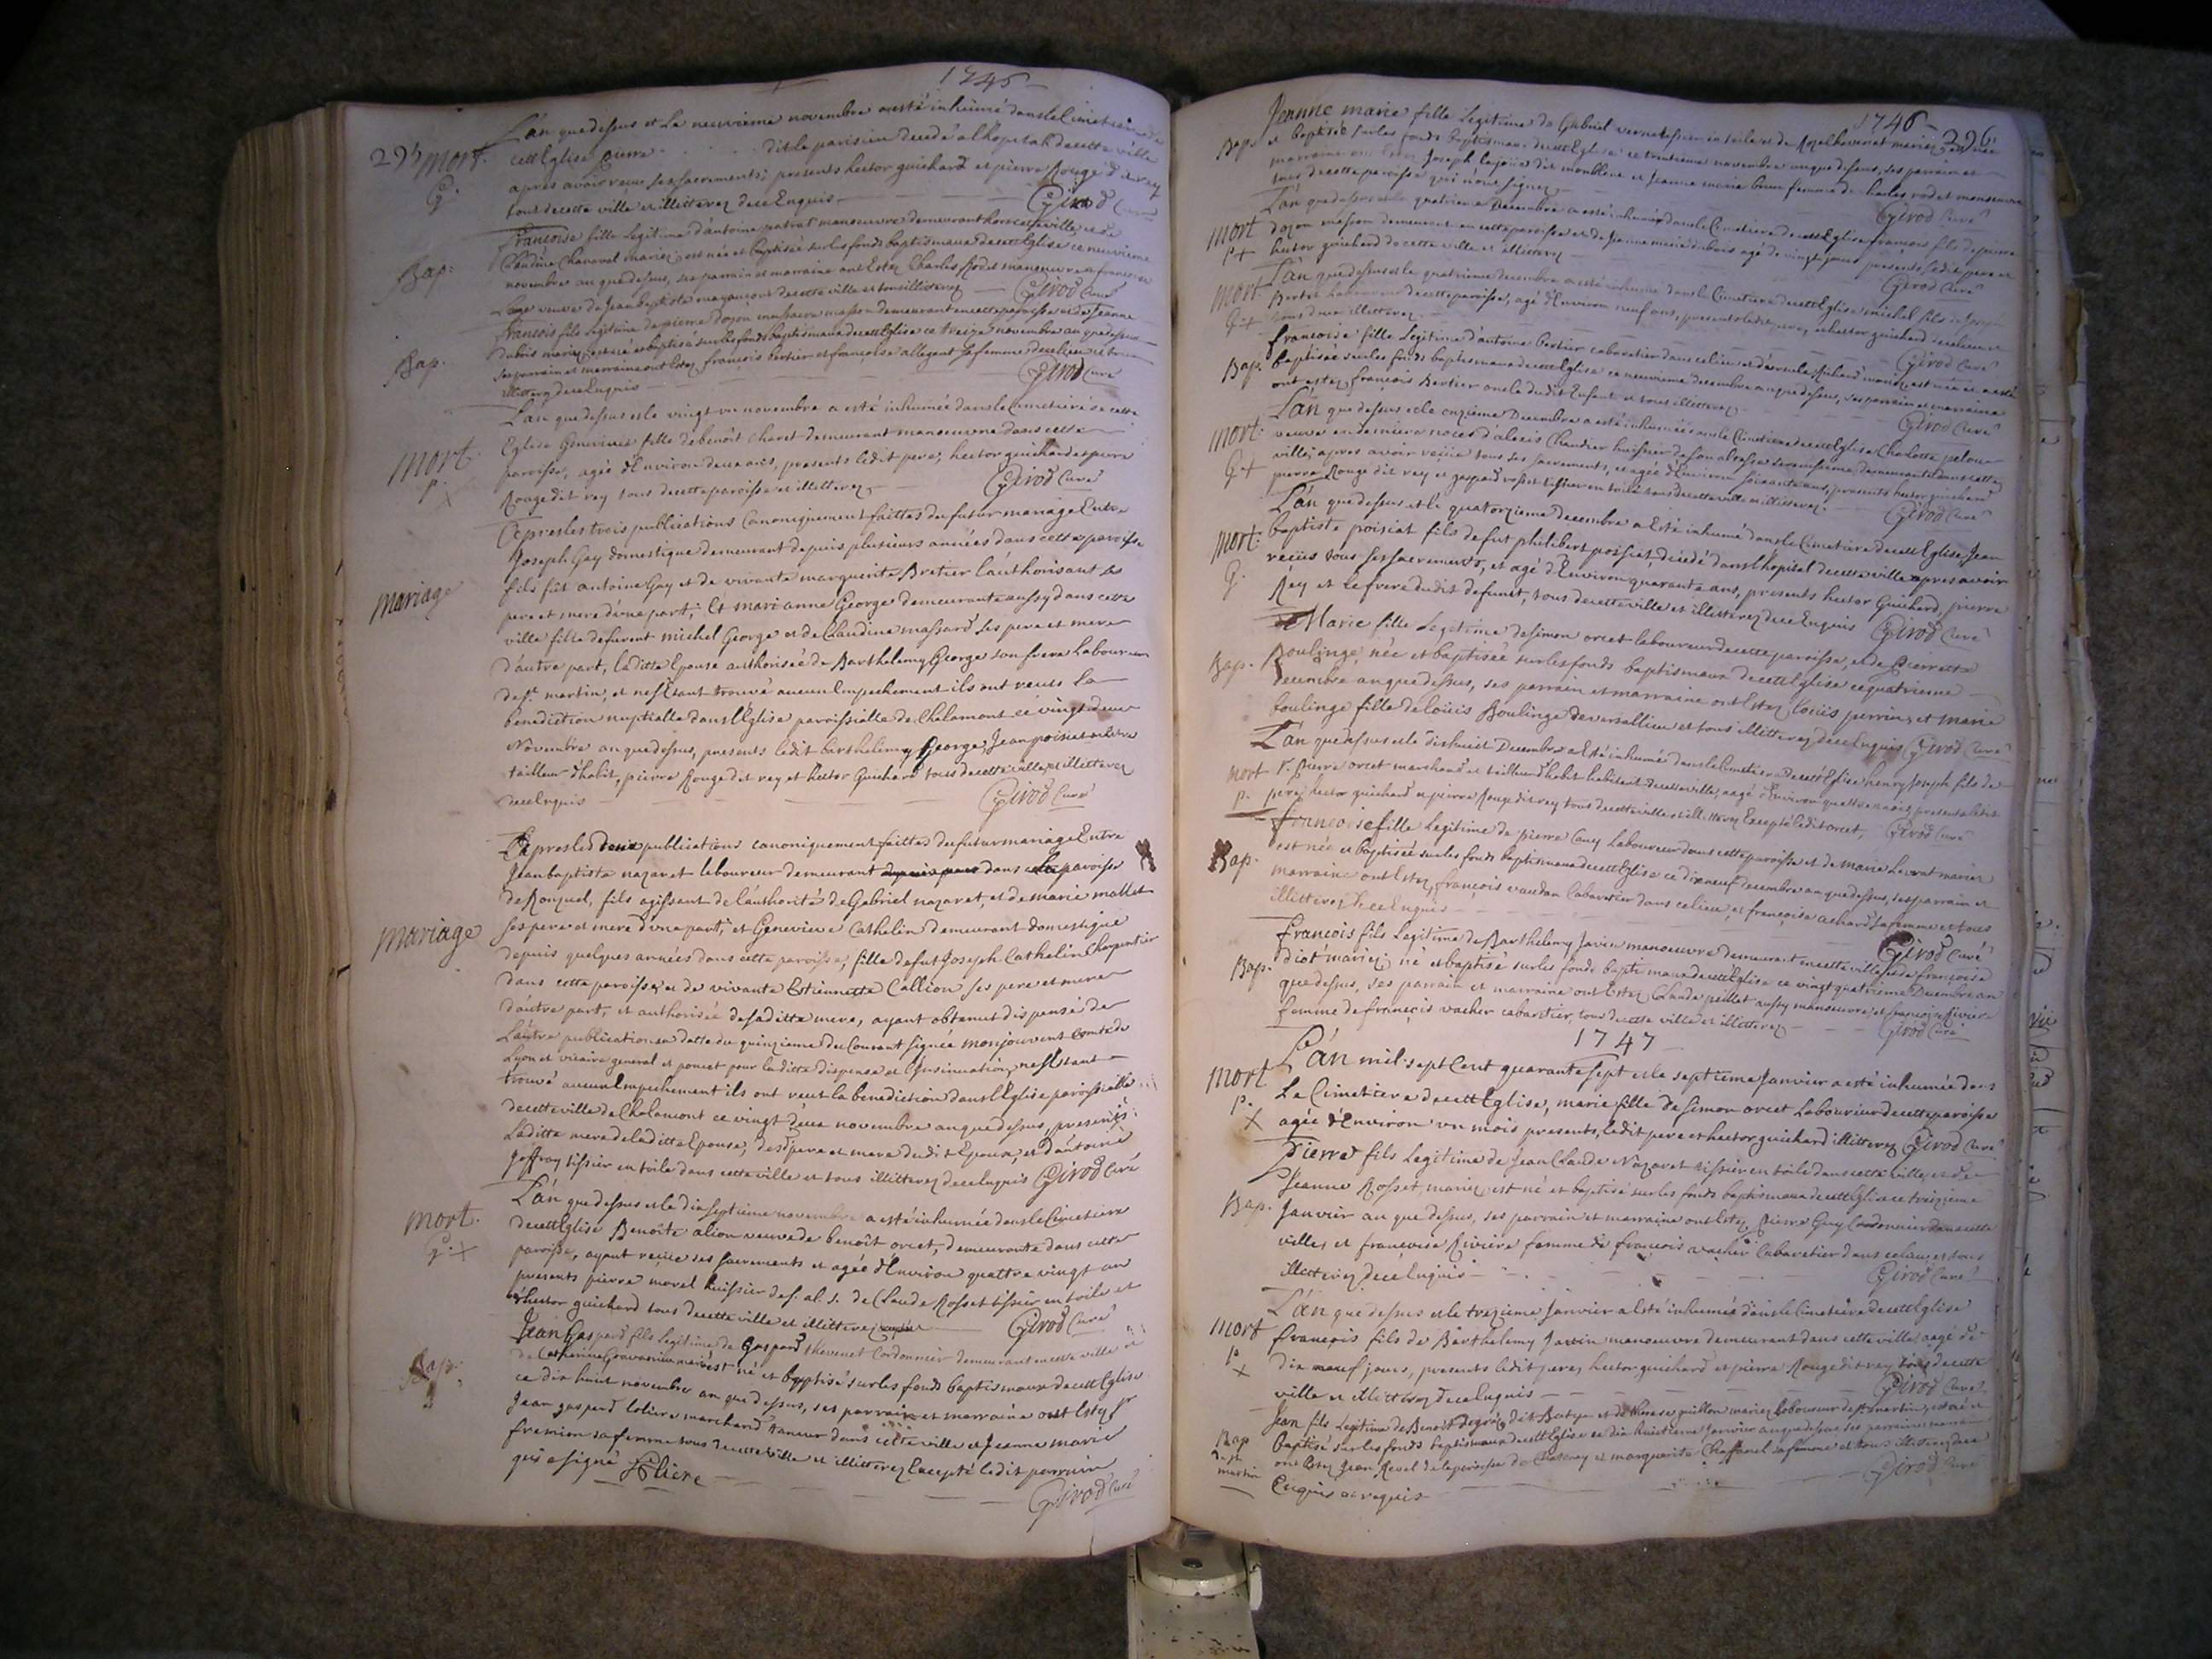 1746
295 mort.
G.
L'an que dessus et le neuvieme novembre a esté inhumé dans le Cimetiere de
cette Eglise pierre dit le parisien decedé a l'hopital de cette ville
apres avoir reçus ses sacrements; presents hector guichard et pierre Rouge dit rey
tous de cette ville et illitterez de ce Enquis Girod Curé
Bap.
francoise fille Legitime d'antoine patrat manoeuvre demeurant hors cette ville et de
Claudine Chanaval mariez est née et Baptisée sur les fonds baptismaux de cette Eglise ce neuvieme
novembre an que dessus, ses parrain et marraine ont Estez Charles Rodet manoeuvre et francoise
veuve de Jean baptiste de cette ville et tous illitterez Girod Curé
Bap.
francois fils Legitime de pierre dozon masson demeurant en cette paroisse et de Jeanne
Dubois mariez est né et baptisé sur les fonds baptismaux de cette Eglise ce treize novembre an que dessus
ses parrain et marraine ont Estez françois bertier et francoise allegent sa femme de ce lieu et tous
illitterez de ce Enquis Girod Curé
mort.
p.
X
L'an que dessus et le vingt un novembre a esté inhumée dans le Cimetiere de cette
Eglise Genevieve fille de benoit Charet demeurant manoeuvre dans cette
paroisse, agée d'Environ deux ans, presents ledit pere, hector guichard et pierre
Rouge dit rey tous de cette paroisse et illitterez Girod Curé
mariage
Et apres les trois publications Canoniquement faittes du futur mariage Entre
Joseph Gay domestique demeurant depuis plusieurs années dans cette paroisse
fils fut antoine Gay et de vivante marguerite Bretier l'authorisant ses
pere et mere d'une part; Et marianne George demeurante aussy dans cette
ville fille defurent michel George et de Claudine massard ses pere et mere
d'autre part, laditte Epouse authorisée de Barthelemy George son frere Laboureur
de St martin, et ne s'Estant trouvé aucun Empechement ils ont reçus la
benediction nuptialle dans l'Eglise paroissialle de Chalamont ce vingt deux
Novembre an que dessus, presents ledit barthelemy George, Jean poisiat
tailleur d'habit, pierre Rouge dit rey et hector Guichard tous de cette ville et illitterez
de ce Enquis Girod Curé
mariage
Et apres les deux publications canoniquement faittes du futur mariage Entre
Jean baptiste nazaret leboureur demeurant dans la paroisse
de Ronzuel, fils agissant de l'authorité de Gabriel nazaret, et de marie mallet
ses pere et mere d'une part; et Genevieve Cathelin demeurant domestique
depuis quelques années dans cette paroisse, fille defut Joseph Cathelin Charpentier
dans cette paroisse et de vivante Estiennette Callion ses pere et mere
d'autre part, et authorisée de saditte mere, ayant obtenu dispense de
l'autre publication en datte du quinzieme du Courant signée monjouvent comte de
Lyon et vicaire general et poncet pour laditte dispense et l'Insinuation, ne s'Estant
trouvé aucun Empechement ils ont reçut la benediction dans l'Eglise paroissialle
de cette ville de Chalamont ce vingt deux novembre an que dessus, presents
Laditte mere de laditte Epouse, des pere et mere dudit Epoux, et d'antoine
Joffray tissier en toile dans cette ville et tous illitterez de ce Enquis Girod Curé
mort.
G. X
L'an que dessus et le dix septieme novembre a esté inhumée dans le Cimetiere
de cette Eglise Benoite alion veuve de benoit orcet, demeurante dans cette
paroisse, ayant reçüe ses sacrements et agée d'Environ quattre vingt an
presents pierre morel huissier de s. al. s. de Claude Rosset tissier en toile et
hector guichard tous de cette ville et illitterez Girod Curé
Bap.
Jean Gaspard fils Legitime de Gaspard thevenet Cordonnier demeurant en cette ville et
de Catherine mariez est né et baptisé sur les fonds baptismaux de cette Eglise
ce dix huit novembre an que dessus, ses parrain et marraine ont Estez Sr
Jean gaspard Loliere marchand tanneur dans cette ville et Jeanne marie
fremion sa femme tous de cette ville et illitterez Excepté ledit parrain
qui a signé Loliere
Girod Curé
1746
296
Bap.
Jeanne marie fille Legitime de Gabriel vernet tissier en toile et de mariez est née
et baptisée sur les fonds baptismaux de cette Eglise ce trentieme novembre an que dessus, ses parrain et
marraine ont Estez Joseph Lajoüe dit monblanc et Jeanne marie brun femme de charles rodet manoeuvre
tous de cette paroisse qui n'ont signez Girod Curé
mort
p X
L'an que dessus et le quatrieme Decembre a esté inhumé dans le Cimetiere de cette Eglise françois fils de pierre
dozon masson demeurant en cette paroisse et de Jeanne marie dubois agé de vingt jours presents ledit pere et
hector guichard de cette ville et illitterez Girod Curé
mort.
G. X
L'an que dessus et le quatrieme decembre a esté inhumé dans le Cimetiere de cette Eglise michel fils de
de cette paroisse, agé d'Environ neuf ans, presents ledit pere, et hector guichard de ce lieu et
tous deux illitterez Girod Curé
Bap.
francoise fille Legitime d'antoine bertier cabaretier dans ce lieu et d'ursule Richard mariez, est née et a esté
baptisée sur les fonds baptismaux de cette Eglise ce neuvieme decembre an que dessus, ses parrain et marraine
ont estez françois bertier oncle dudit Enfant et tous illitterez Girod Curé
mort.
G X
L'an que dessus et le onzieme Decembre a esté inhumée dans le Cimetiere de cette Eglise Charlotte peloux
veuve en derniere noces d'alexis Chaudier huissier de son altesse serenissime, demeurante dans cette
ville, apres avoir reçüe tous ses sacrements, et agée d'Environ soixante ans, presents hector guichard
pierre Rouge dit rey et gaspard rosset tissier en toile tous de cette ville et illitterez Girod Curé
mort.
G.
L'an que dessus et le quatorzieme decembre a Esté inhumé dans le Cimetiere de cette Eglise, Jean
baptiste poisiat fils de fut philibert poisiat, decedé dans l'hopital de cette ville apres avoir
reçus tous ses sacrements, et agé d'Environ quarante ans, presents hector Guichard, pierre
Rey et le frere dudit defunct, tous de cette ville et illitterez de ce Enquis Girod Curé
Bap.
Marie fille Legitime de simon orcet leboureur de cette paroisse, et de Pierrette
Boulinge, née et baptisée sur les fonds baptismaux de cette Eglise ce quatrieme
Decembre an que dessus, ses parrain et marraine ont Estez loüis perrin, et marie
boulinge fille de loüis Boulinge de versallieu et tous illitterez de ce Enquis Girod Curé
mort
p.
L'an que dessus et le dix huict Decembre a Esté inhumé dans le Cimetiere de cette Eglise henry Joseph fils de
Sr. pierre orcet marchand et tailleur d'habit habitant de cette ville, aagé d'Environ quattre mois presents ledit
pere, hector guichard et pierre Rouge dit rey tous de cette ville et illitterez Excepté ledit orcet, Girod Curé
Bap.
francoise fille Legitime de pierre Cauy Laboureur dans cette paroisse et de marie mariez
est née et baptisée sur les fonds baptismaux de cette Eglise ce dix neuf decembre an que dessus, ses parrain et
marraine ont Estez, françois vaudan Cabaretier dans ce lieu, et françoise achard sa femme et tous
illitterez de ce Enquis Girod Curé
Bap.
francois fils Legitime de Barthelemy Javin manoeuvre demeurant en cette ville et de françoise
diot mariez, né et baptisé sur les fonds baptismaux de cette Eglise ce vingt quatrieme Decembre an
que dessus, ses parrain et marraine ont Estez Claude peillet aussy manoeuvre, et françoise Riviere
femme de françois vacher cabaretier, tous de cette ville et illitterez Girod Curé
1747
mort
p.
X
L'an mil sept Cent quarante sept et le septieme Janvier a esté inhumée dans
Le Cimetiere de cette Eglise, marie fille de simon orcet Laboureur de cette paroisse
agée d'Environ un mois presents, ledit pere et hector guichard illitterez Girod Curé
Bap.
Pierre fils Legitime de Jean Claude Nazaret tissier en toile dans cette ville, et de
Jeanne Rosset, mariez est né et baptisé sur les fonds baptismaux de cette Eglise ce treizieme
Janvier an que dessus, ses parrain et marraine ont Estez pierre Guy Cordonnier dans cette
ville, et françoise Riviere femme de françois vacher Cabaretier dans ce lieu, et tous
illitterez de ce Enquis Girod Curé
mort
p
X
L'an que dessus et le trezieme Janvier a Esté inhumé dans le Cimetiere de cette Eglise
françois fils de Barthelemy Javin manoeuvre demeurant dans cette ville aagé de
dix neuf jours, presents ledit pere, hector guichard et pierre Rouge dit rey tous de cette
ville et illitterez de ce Enquis Girod Curé
Bap
de St
martin
Jean fils Legitime de Benoit dit Batye et de therese guillon mariez laboureur de St martin, est né et
baptisé sur les fonds baptismaux de cette Eglise ce dix huitieme Janvier an que dessus ses parrain et marraine
ont Estez Jean Revel de la paroisse de et marguerite Chaffanel sa femme et tous illitterez de ce
Enquis et requis Girod Curé